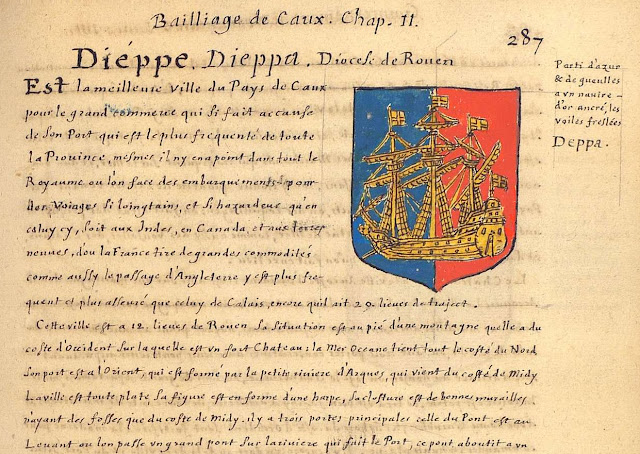 Bailliage de Caux. Chap. 11.
287
Diéppe. Dieppa. Diocese de Rouen
Est la meilleure ville du Pays de Caux
pour le grand commerce qui si fait a cause
de son Port qui est le plus frequenté de toute
la Prouince, mesmes il ny en a point dans tout le
Royaume ou l'on face des embarquements pour
des Voiages si loingtains, et si hazardeus qu'en
celuy cy, soit aux Indes, en Canada, et aux terres
neuues, dou la France tire de grandes commodités
comme aussy le passage d'Angleterre y est plus fre
quent et plus asseuré que celuy de Calais, encore quil ait 29. lieues de traject.
Cette ville est a 12. lieues de Rouen Sa Situation est ou pié d'une montagne quelle a du
costé d'Occident sur laquelle est vn fort Chateau: la Mer Oceane tient tout le costé du Nord
son port est a l'Orient, qui est formé par la petite riuiere d'Arques, qui vient du costé de Midy
La ville est toute plate, sa figure est en forme d'une harpe, sa closture est de bonnes murailles
n'ayant des fosses que du coste de Midy. il y a trois portes principales celle du Pont est au
Leuant ou lon passe vn grand pont sur la riuiere qui fait le Port, ce pont aboutit a vn
Parti d'azur
& de gueulles
a vn nauire
d'or ancré, les
voiles freslées
Deppa.